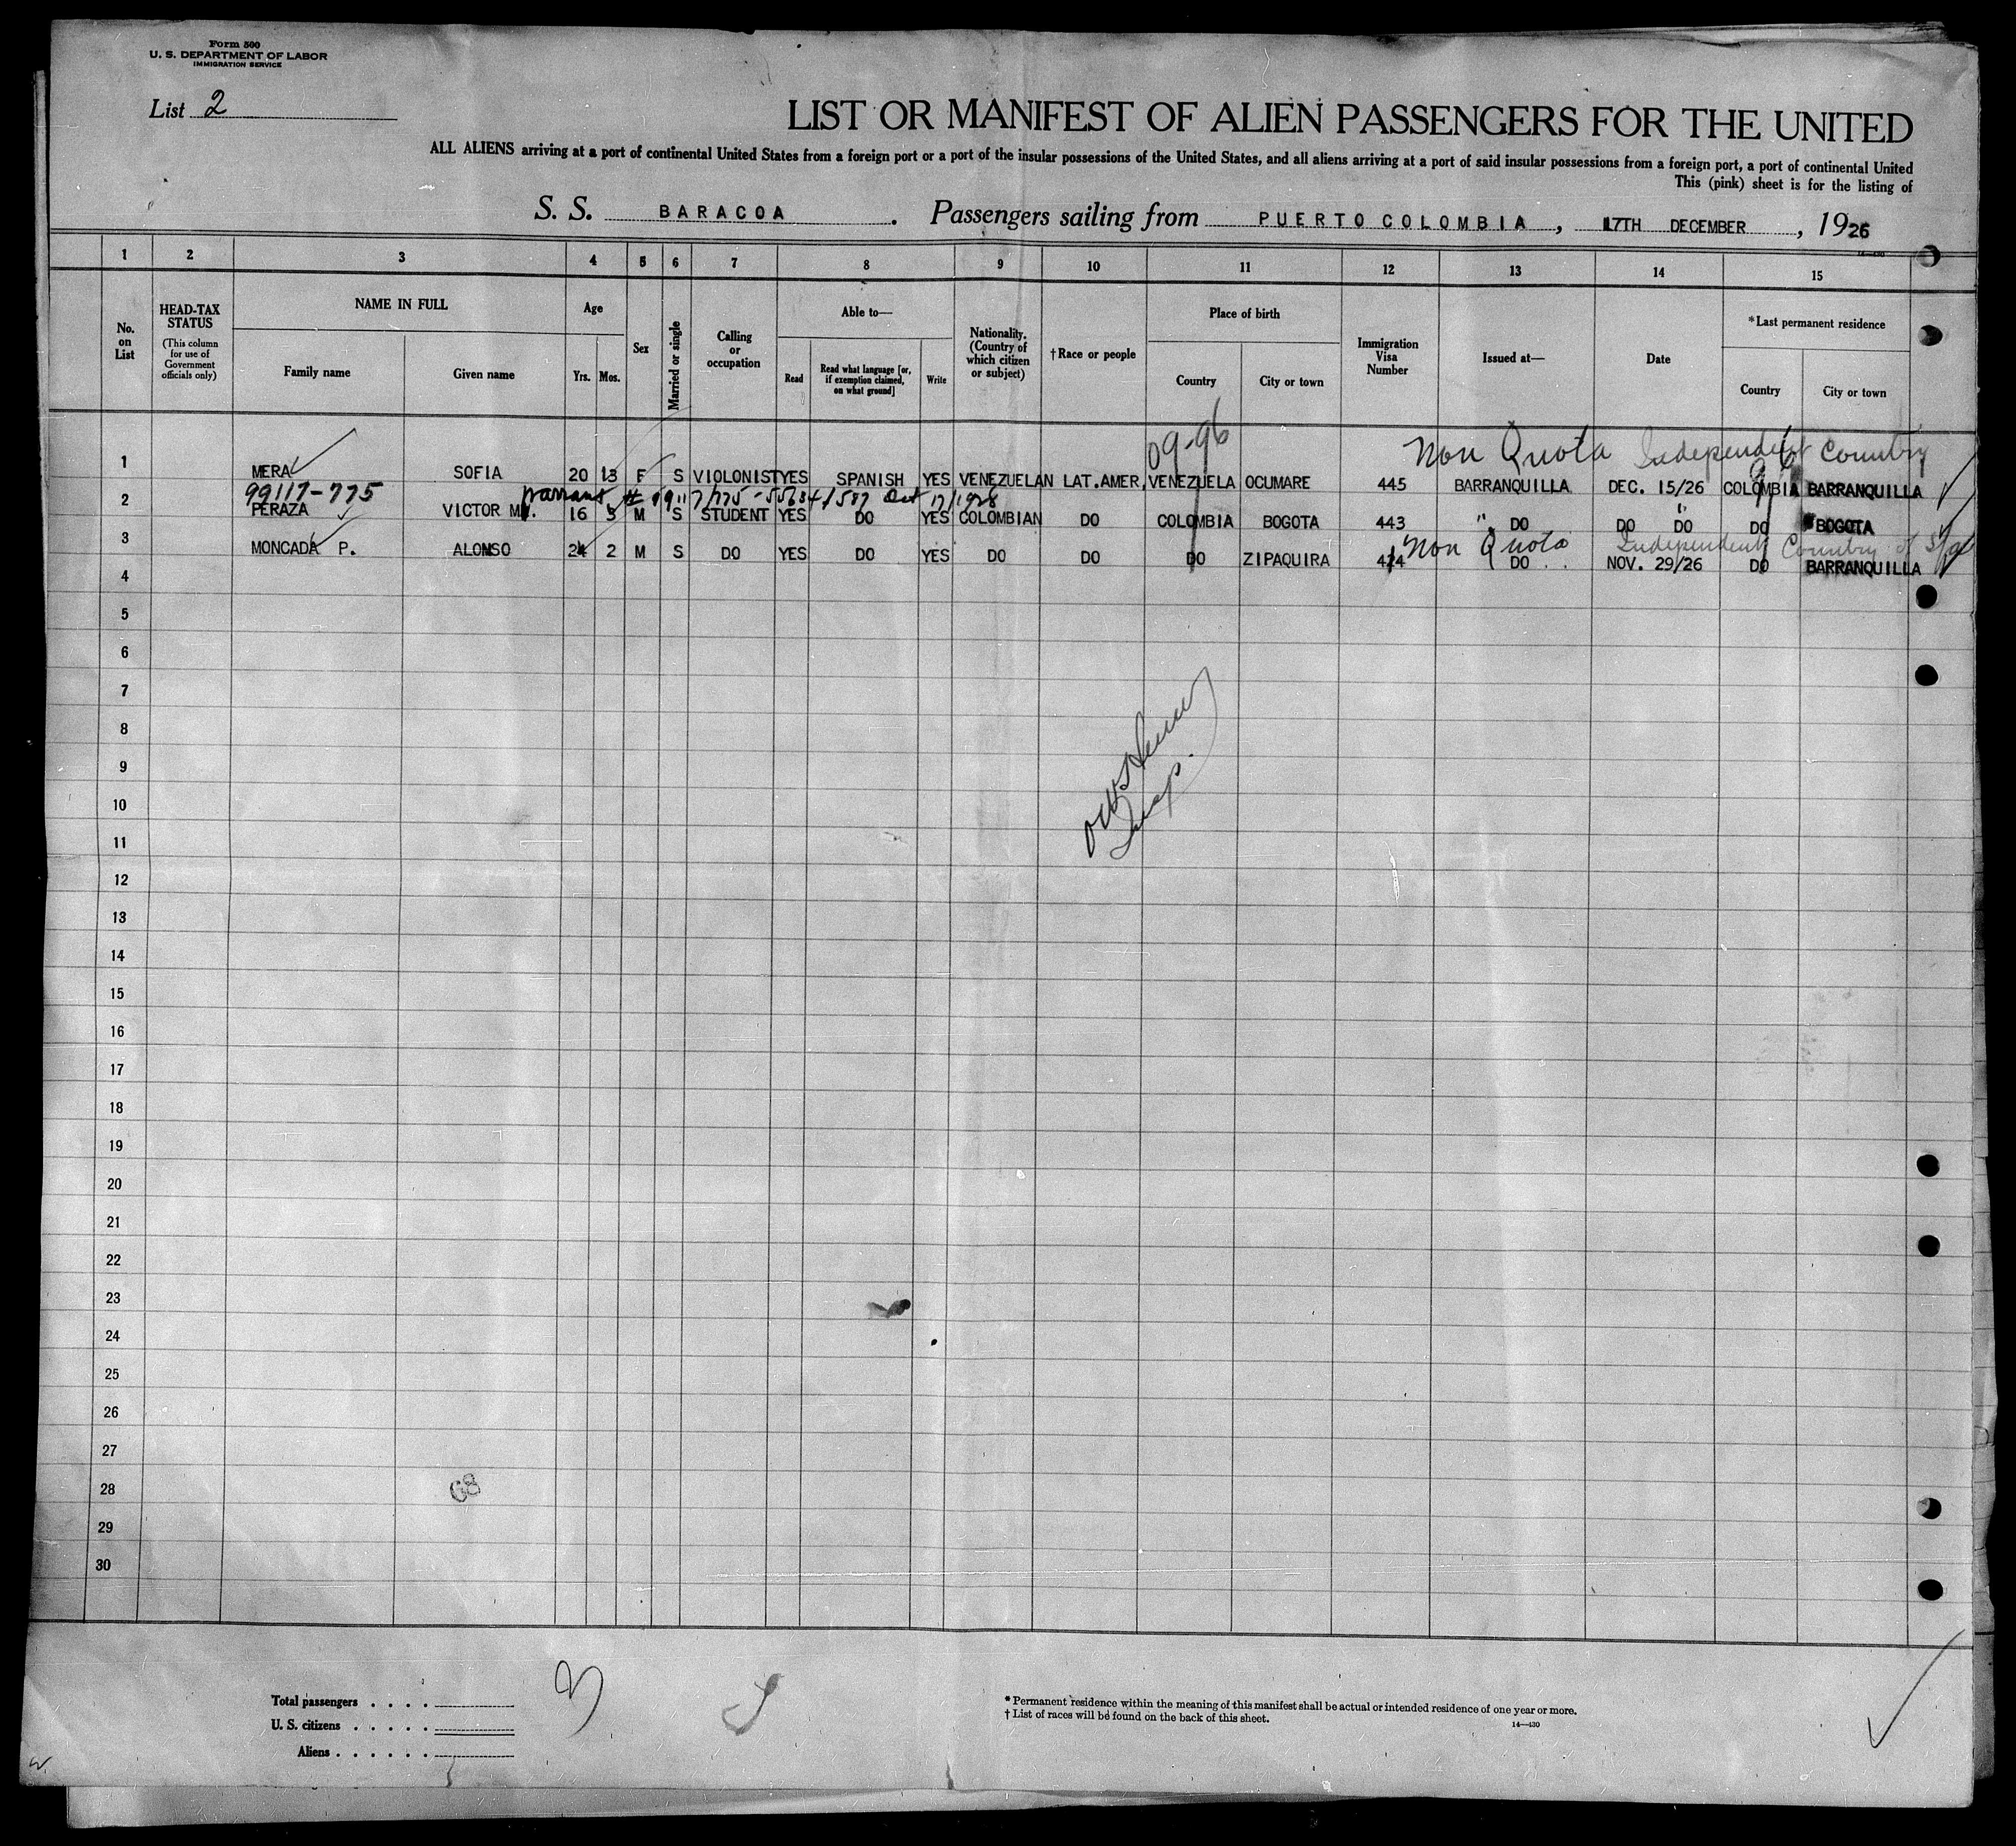 Form 500
U. S. DEPARTMENT OF LABOR
IMMIGRATION SERVICE
List 2
LIST OR MANIFEST OF ALIEN PASSENGERS FOR THE UNITED
ALL ALIENS arriving at a port of continental United States from a foreign port or a port of the insular possessions of the United States, and all aliens arriving at a port of said insular possessions from a foreign port, a port of continental United
This (pink) sheet is for the listing of
S. S. BARACOA. Passengers sailing from PUERTO COLOMBIA, 17TH DECEMBER, 1926
14—430
1 2 3 4 5 6 7 8 9 10 11 12 13 14 15
No. on List
HEAD-TAX STATUS
(This column for use of Government officials only)
NAME IN FULL
Family name
Given name
Age
Yrs. Mos.
Sex
Married or single
Calling or occupation
Able to—
Read
Read what language [or, if exemption claimed, on what ground]
Write
Nationality. (Country of which citizen or subject)
†Race or people
Place of birth
Country
City or town
Immigration Visa Number
Issued at—
Date
*Last permanent residence
Country
City or town
09-96
Non Quota Independent Country
1 MERA SOFIA 20 13 F S VIOLONIST YES SPANISH YES VENEZUELAN LAT.AMER. VENEZUELA OCUMARE 445 BARRANQUILLA DEC. 15/26 COLOMBIA BARRANQUILLA
99117-775 Warrant # 99117/775
2 PERAZA VICTOR M. 16 5 M S STUDENT YES DO YES COLOMBIAN DO COLOMBIA BOGOTA 443 " DO DO " DO DO BOGOTA
Non Quota Independent Country of
3 MONCADA P. ALONSO 24 2 M S DO YES DO YES DO DO DO ZIPAQUIRA 424 DO NOV. 29/26 DO BARRANQUILLA
4
5
6
7
8
9
10
11
12
13
14
15
16
17
18
19
20
21
22
23
24
25
26
27
28
29
30
Insp.
68
Total passengers . . . .
U. S. citizens . . . . .
Aliens . . . . . .
3
* Permanent residence within the meaning of this manifest shall be actual or intended residence of one year or more.
† List of races will be found on the back of this sheet.
14—430